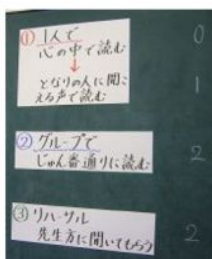 ① 1人で
心の中で読む
↓
となりの人に聞こ
える声で読む
0
1
② グループで
じゅん番通りに読む
2
③ リハーサル
先生方に聞いてもらう
2